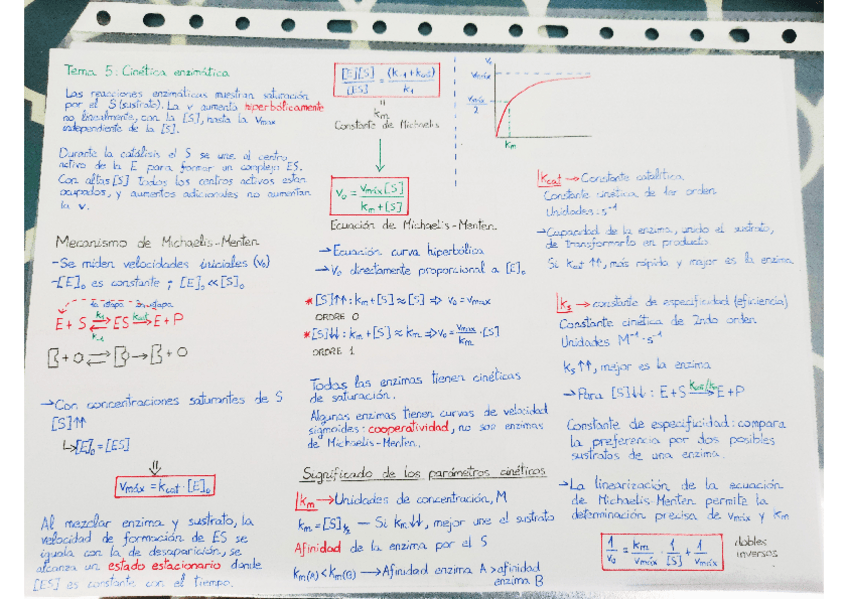 Tema 5: Cinética enzimática
Las reacciones enzimáticas muestran saturación
por el S (sustrato). La v aumenta hiperbólicamente
no linealmente, con la [S], hasta la Vmax
independiente de la [S].
Durante la catálisis el S se une al centro
activo de la E para formar un complejo ES.
Con altas [S] todos los centros activos están
ocupados, y aumentos adicionales no aumentan
la v.
Mecanismo de Michaelis-Menten
-Se miden velocidades iniciales (v₀)
-[E]₀ es constante ; [E]₀ << [S]₀
1a etapa 2a etapa
E + S ⇌ ES → E + P
k₁ k₋₁ kcat
→Con concentraciones saturantes de S
[S]↑↑
↳[E]₀ = [ES]
⇓
vmáx = kcat · [E]₀
Al mezclar enzima y sustrato, la
velocidad de formación de ES se
iguala con la de desaparición, se
alcanza un estado estacionario donde
[ES] es constante con el tiempo.
[E][S]/[ES] = (k₋₁ + kcat)/k₁
=
km
Constante de Michaelis
v₀ = vmáx [S]/km + [S]
Ecuación de Michaelis-Menten
→Ecuación curva hiperbólica
→v₀ directamente proporcional a [E]₀
*[S]↑↑: km + [S] ≈ [S] ⇒ v₀ = vmax
ORDRE 0
*[S]↓↓: km + [S] ≈ km ⇒ v₀ = vmax/km · [S]
ORDRE 1
Todas las enzimas tienen cinéticas
de saturación.
Algunas enzimas tienen curvas de velocidad
sigmoides: cooperatividad, no son enzimas
de Michaelis-Menten.
Significado de los parámetros cinéticos
km →Unidades de concentración, M
km = [S]½ — Si km↓↓, mejor une el sustrato
Afinidad de la enzima por el S
km(A) < km(B) → Afinidad enzima A > afinidad
enzima B
v₀
vmáx
vmáx/2
km
kcat → Constante catalítica
Constante cinética de 1er orden
Unidades: s⁻¹
→Capacidad de la enzima, unido el sustrato,
de transformarlo en producto
Si kcat ↑↑, más rápida y mejor es la enzima
ks → constante de especificidad (eficiencia)
Constante cinética de 2ndo orden
Unidades M⁻¹·s⁻¹
ks↑↑, mejor es la enzima
→Para [S]↓↓: E + S kcat/km→ E + P
Constante de especificidad: compara
la preferencia por dos posibles
sustratos de una enzima.
→La linearización de la ecuación
de Michaelis-Menten permite la
determinación precisa de vmáx y km
1/v₀ = km/vmáx · 1/[S] + 1/vmáx
dobles
inversos